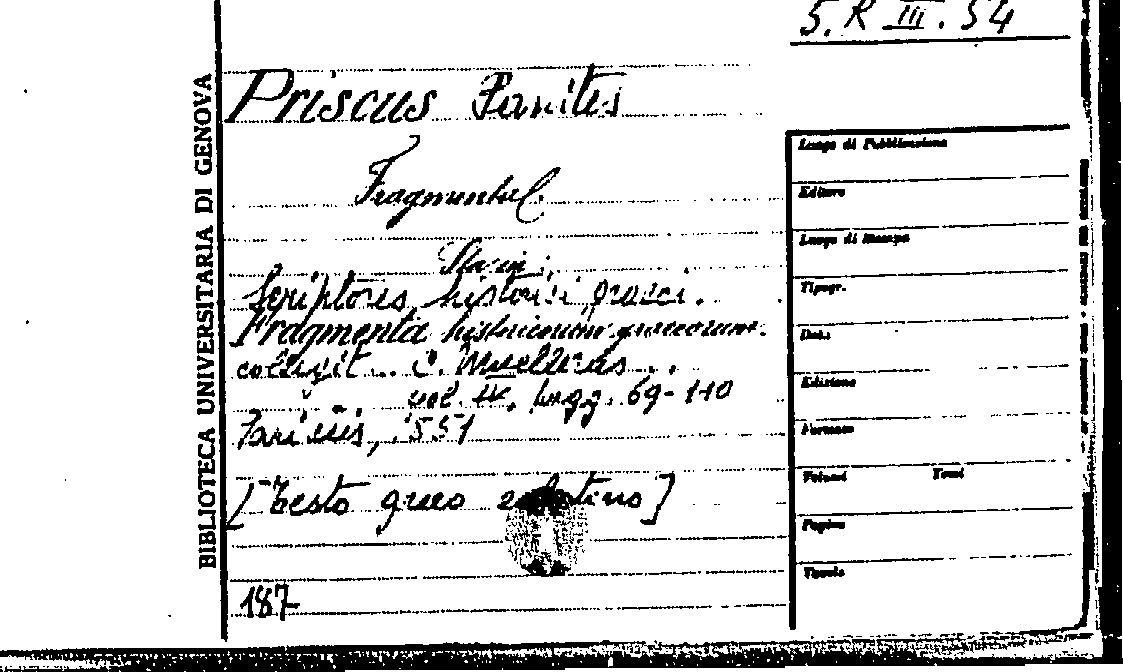 5. R III. 54
Priscus Panites
Fragmenta
Sta in:
Scriptores historici graeci.
Fragmenta historicorum graecorum.
collegit... C. Muellerus...
vol. IV. pagg. 69-110
Parisiis, 1851
[Testo greco e latino]
187
BIBLIOTECA UNIVERSITARIA DI GENOVA
Luogo di Pubblicazione
Editore
Luogo di Stampa
Tipogr.
Data
Edizione
Formato
Volumi Tomi
Pagine
Tavole